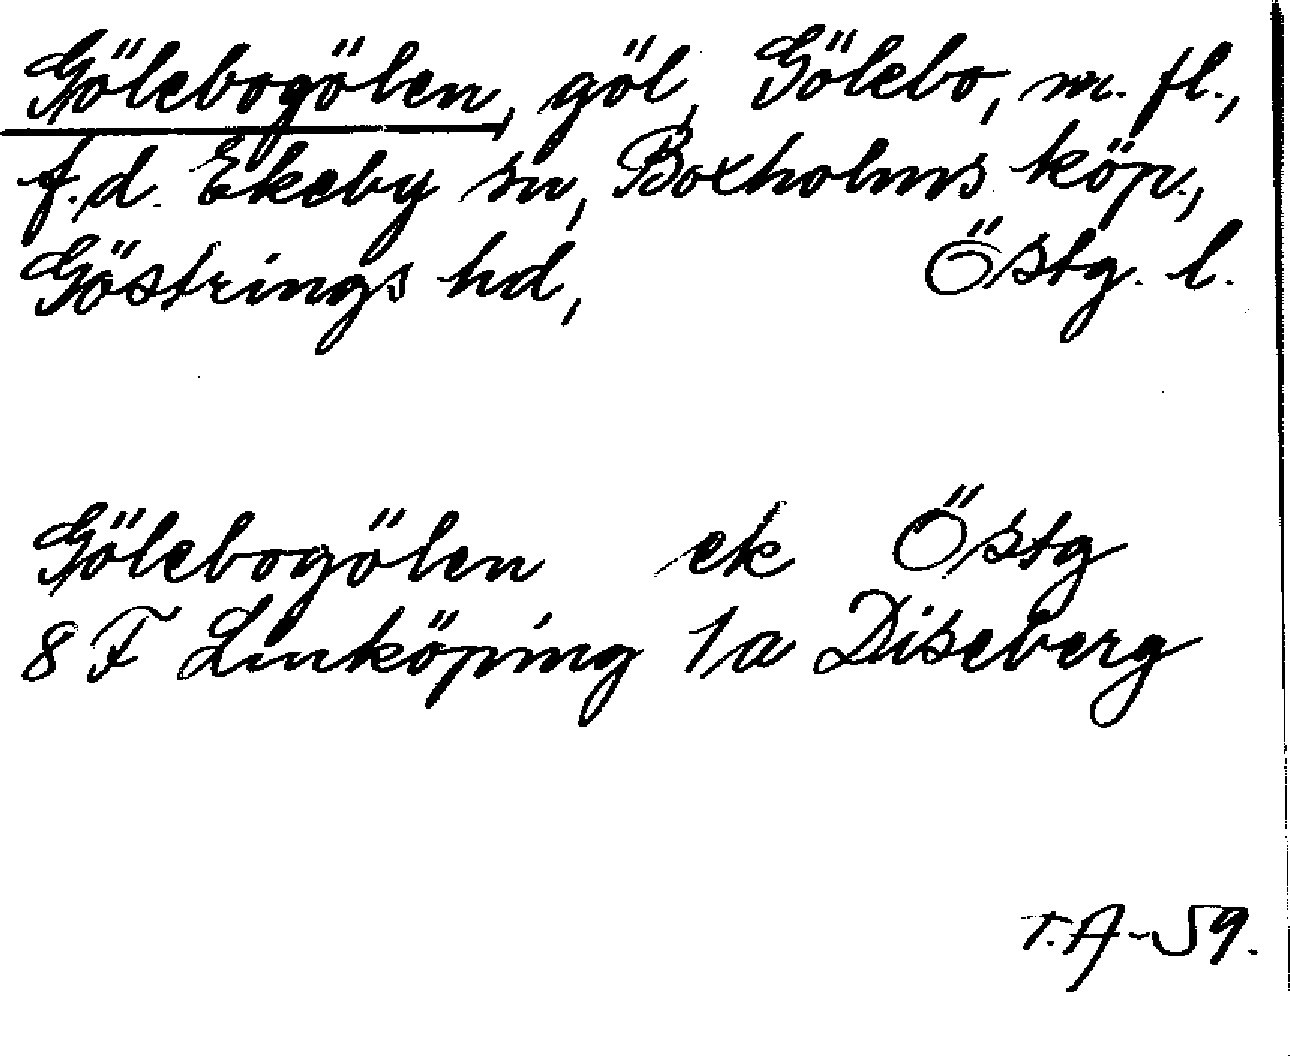 Gölebogölen, göl, Gölebo, m. fl.,
f.d. Ekeby sn, Boxholms köp.,
Göstrings hd, Östg. l.
Gölebogölen ek Östg
8 F Linköping 1a Diseberg
T.A-59.